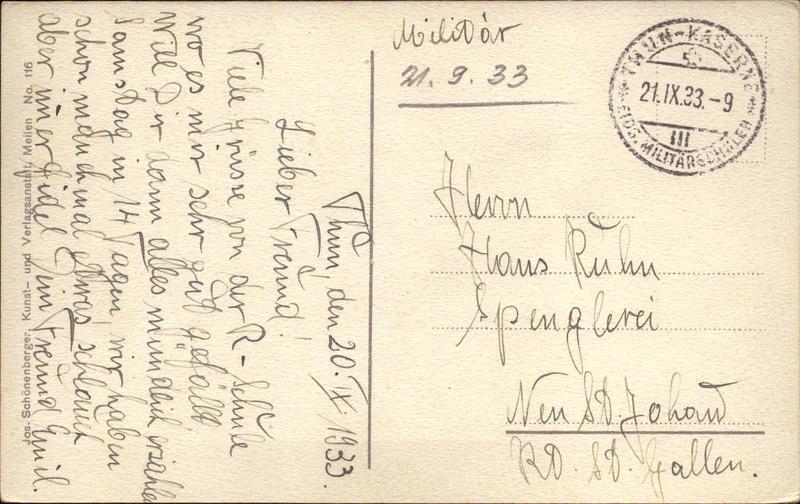 Militär
21. 9. 33
THUN-KASERNE
21.IX.33.-9
III
EIDG. MILITÄRSCHULEN
Herrn
Hans Kuhn
Spenglerei
Neu St. Johann
KD. St. Gallen.
Thun, den 20. IX 1933.
Lieber Freund!
Viele Grüsse von der R-Schule
wo es mir sehr gut gefällt
Will Dir dann alles mündlich erzählen
Samstag in 14 Tagen, wir haben
schon manchmal etwas schlauch
aber immer fidel Dein Freund Emil.
Jos. Schönenberger, Kunst- und Verlagsanstalt, Meilen No. 116